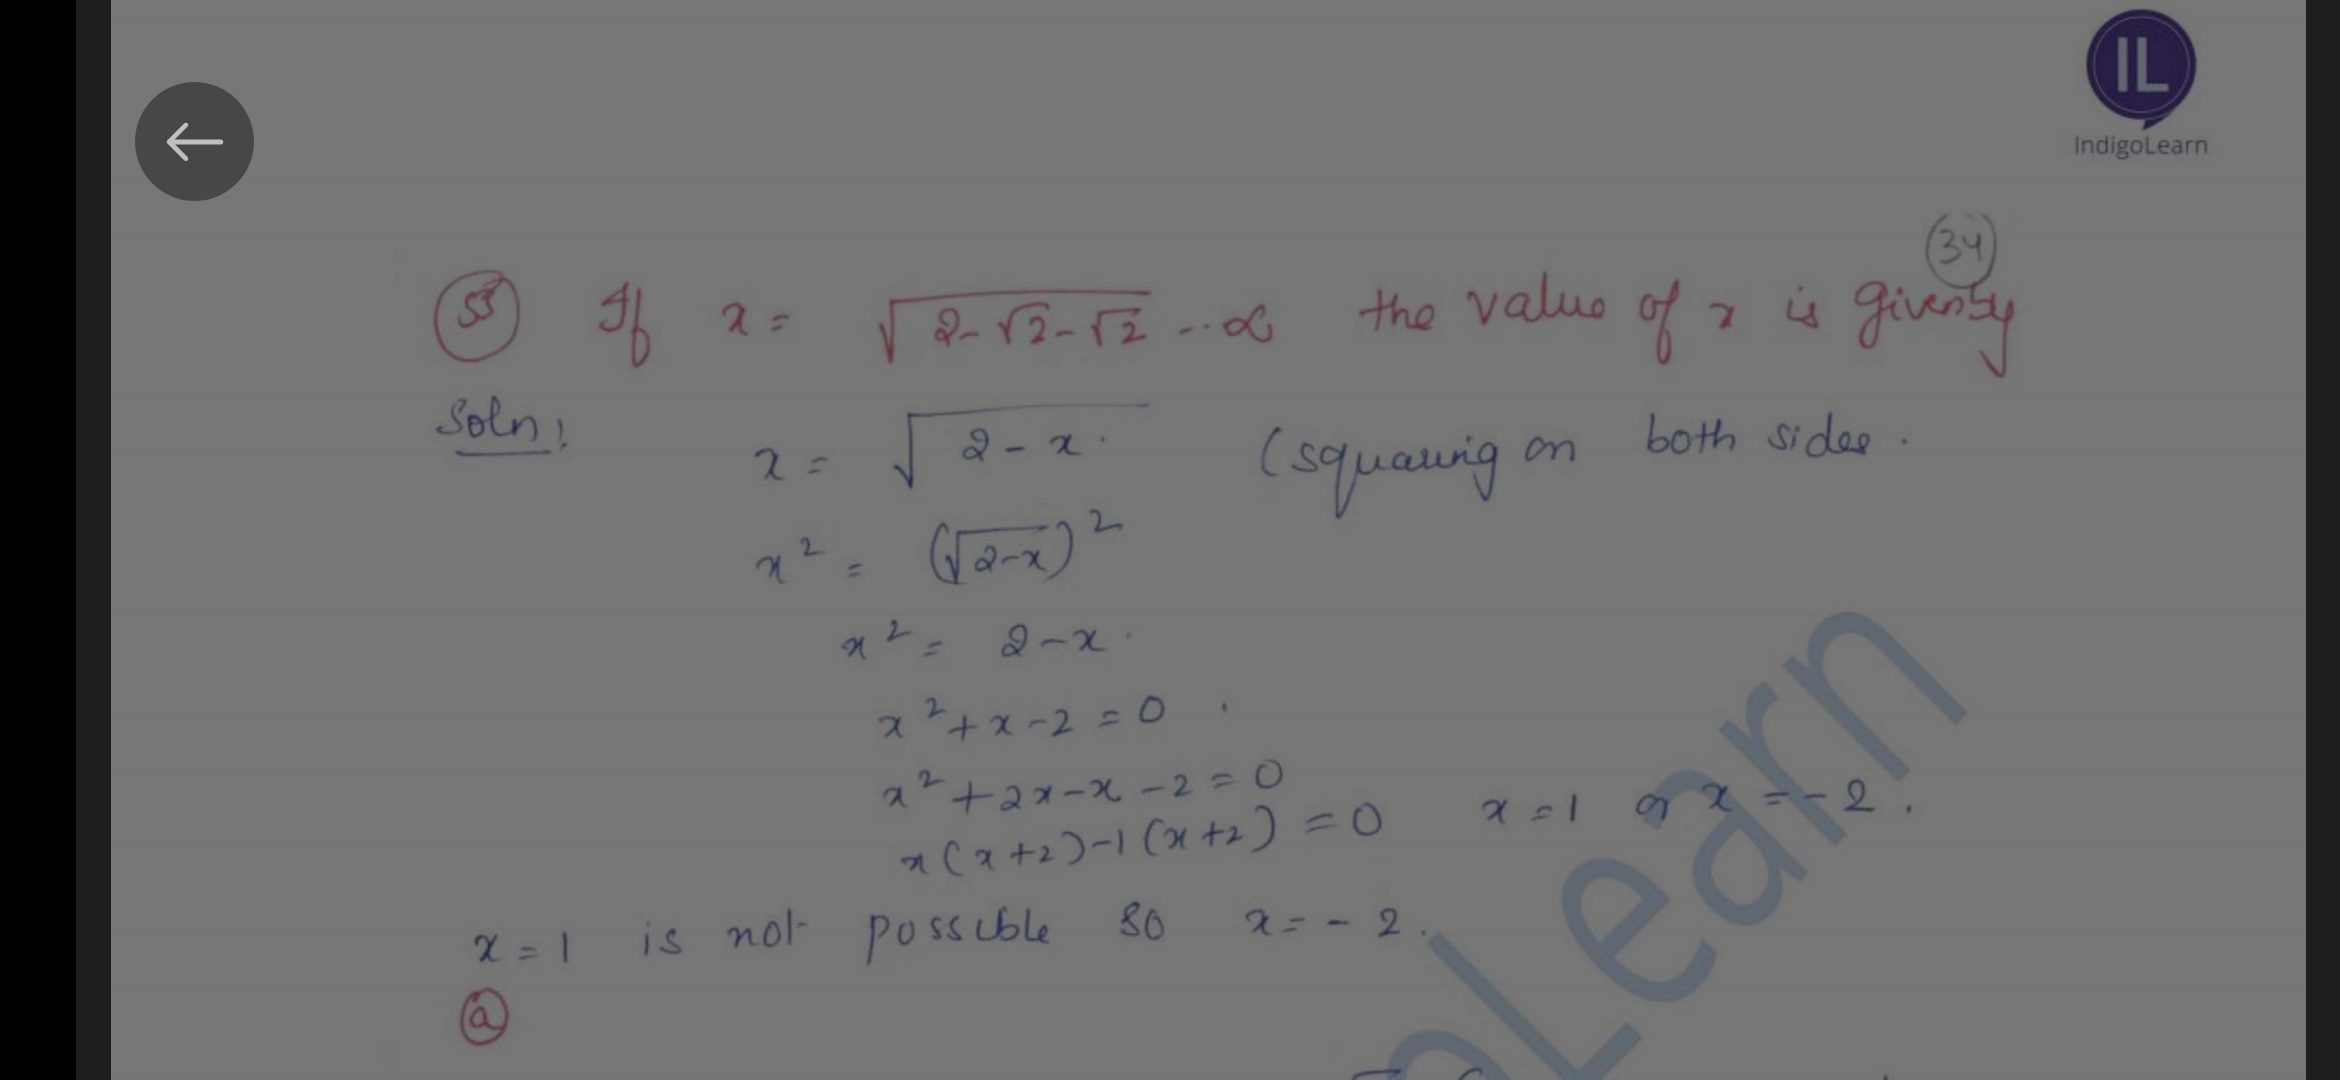 IL
IndigoLearn
34
53 If x = √2-√2-√2 -..∞ the value of x is given by
Soln: x = √2-x. (squaring on both sides.
x² = (√2-x)²
x² = 2-x.
x²+x-2=0.
x²+2x-x-2=0
x(x+2)-1(x+2)=0 x=1 or x=-2.
x=1 is not possible so x=-2.
a
Learn